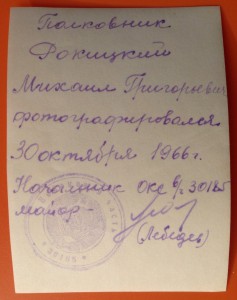 Полковник
Фокицкий
Михаил Григорьевич
фотографировался
30 октября 1966 г.
Начальник ОКС в/ч 30185
майор -
(Лебедев)